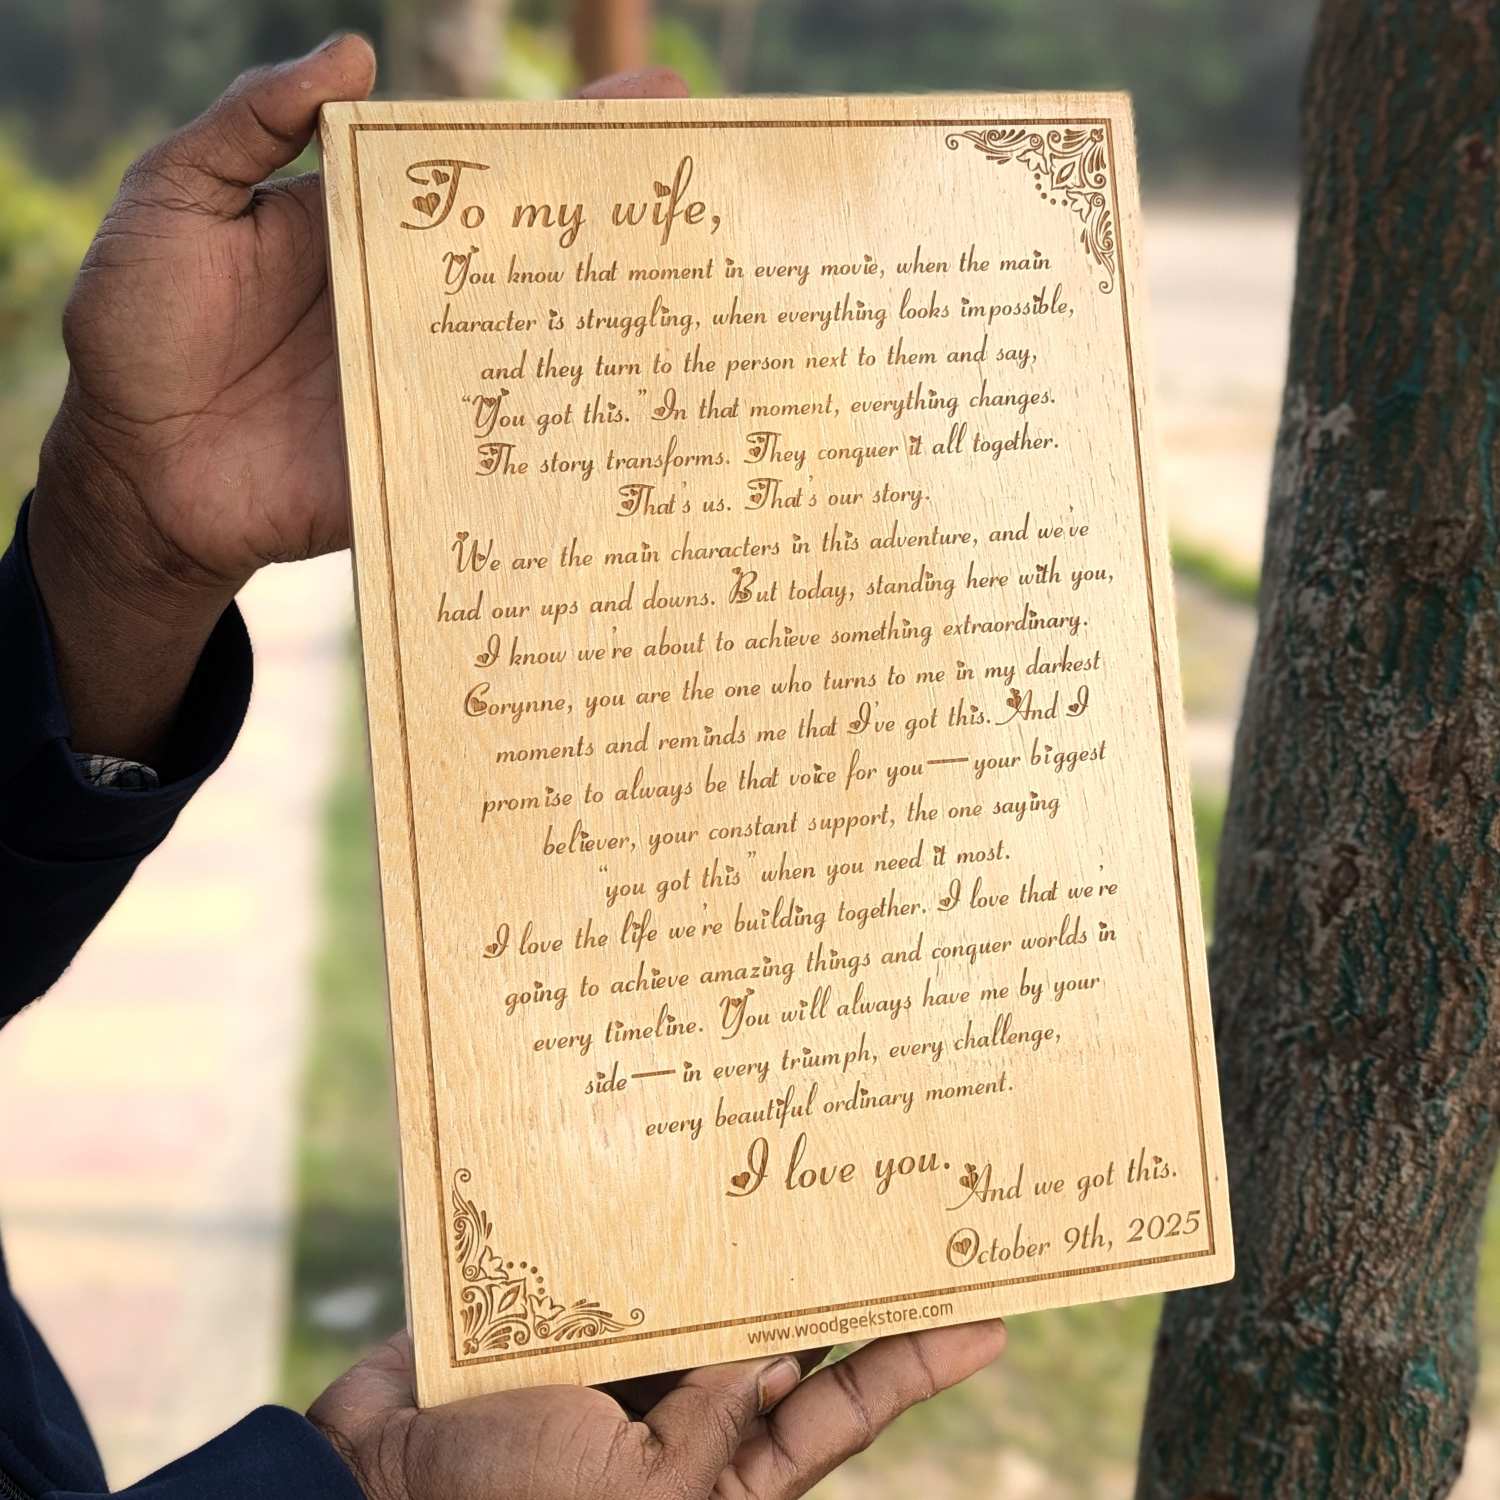 To my wife,
You know that moment in every movie, when the main
character is struggling, when everything looks impossible,
and they turn to the person next to them and say,
“You got this.” In that moment, everything changes.
The story transforms. They conquer it all together.
That's us. That's our story.
We are the main characters in this adventure, and we've
had our ups and downs. But today, standing here with you,
I know we're about to achieve something extraordinary.
Corynne, you are the one who turns to me in my darkest
moments and reminds me that I've got this. And I
promise to always be that voice for you—your biggest
believer, your constant support, the one saying
“you got this” when you need it most.
I love the life we're building together. I love that we're
going to achieve amazing things and conquer worlds in
every timeline. You will always have me by your
side—in every triumph, every challenge,
every beautiful ordinary moment.
I love you.
And we got this.
October 9th, 2025
www.woodgeekstore.com